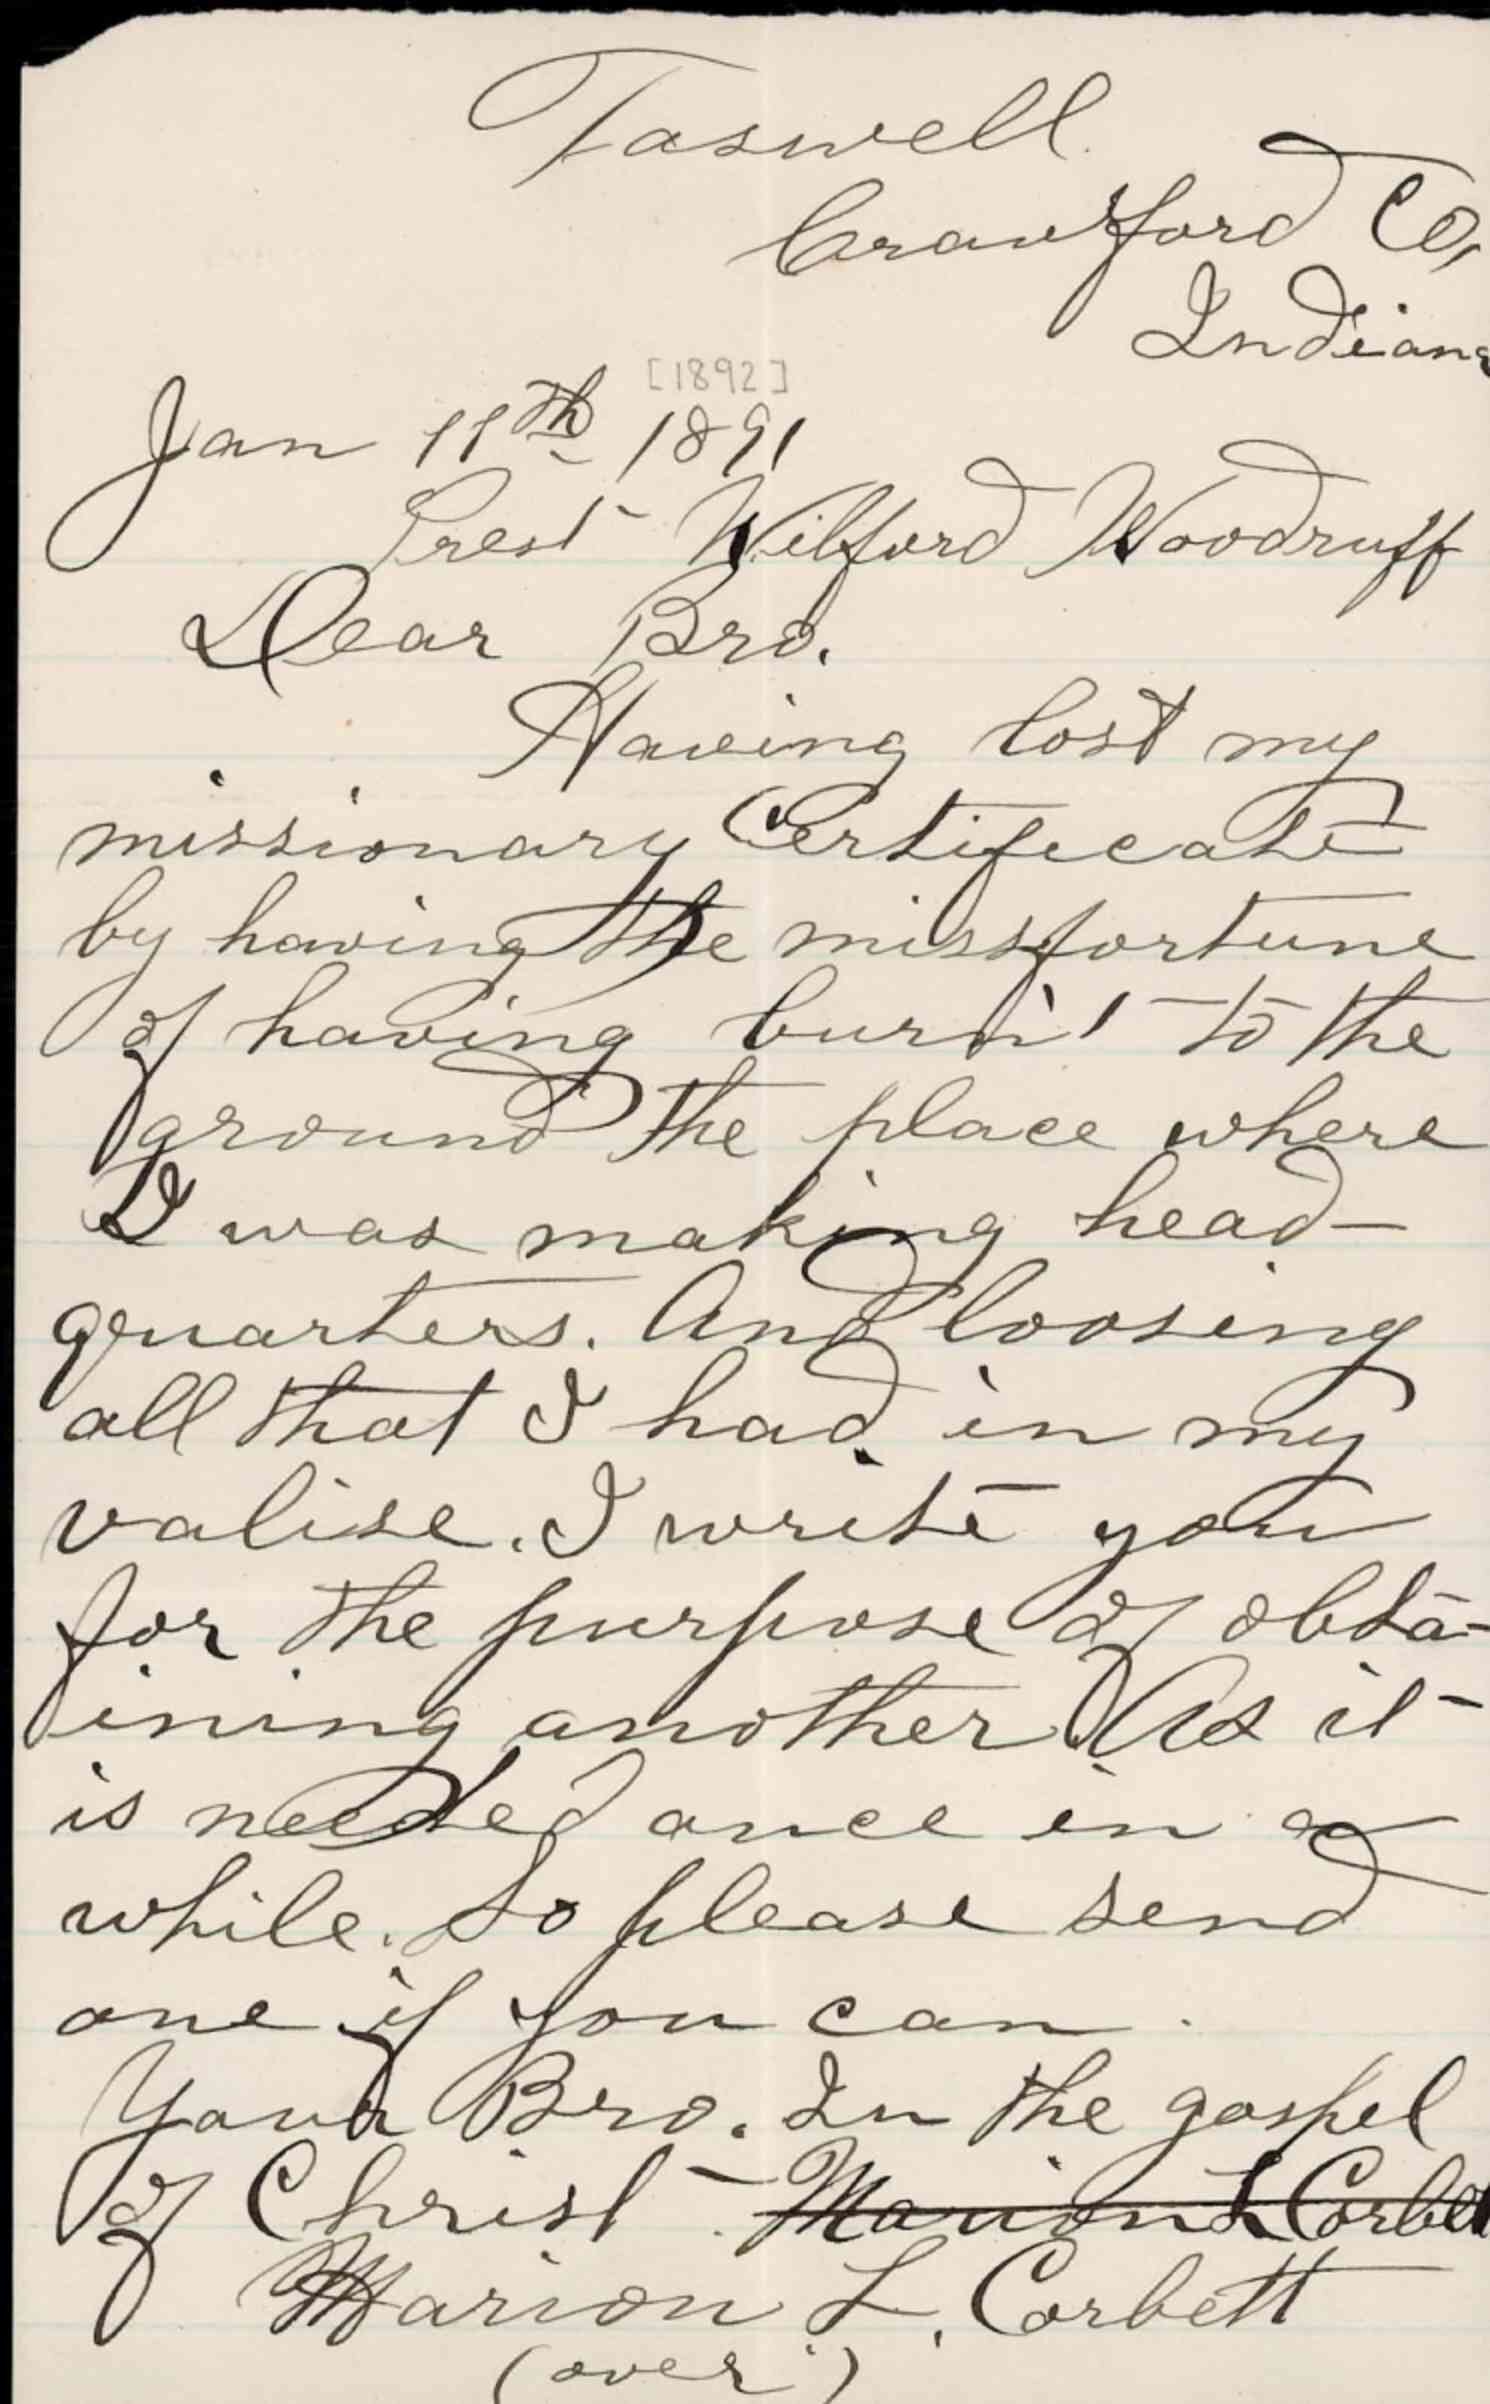 Taswell.
Crawford Co,
Indiana
[1892]
Jan 11th 1891
Prest Wilford Woodruff
Dear Bro.
Having lost my
missionary Certificate
by having the missfortune
of having burnt to the
ground the place where
I was making head-
quarters. And loosing
all that I had in my
valise. I write you
for the purpose of obta-
ining another. As it
is needed once in a
while. So please send
one if you can.
Your Bro. In the gospel
of Christ. Marion L Corbet
Marion L. Corbett
(over.)